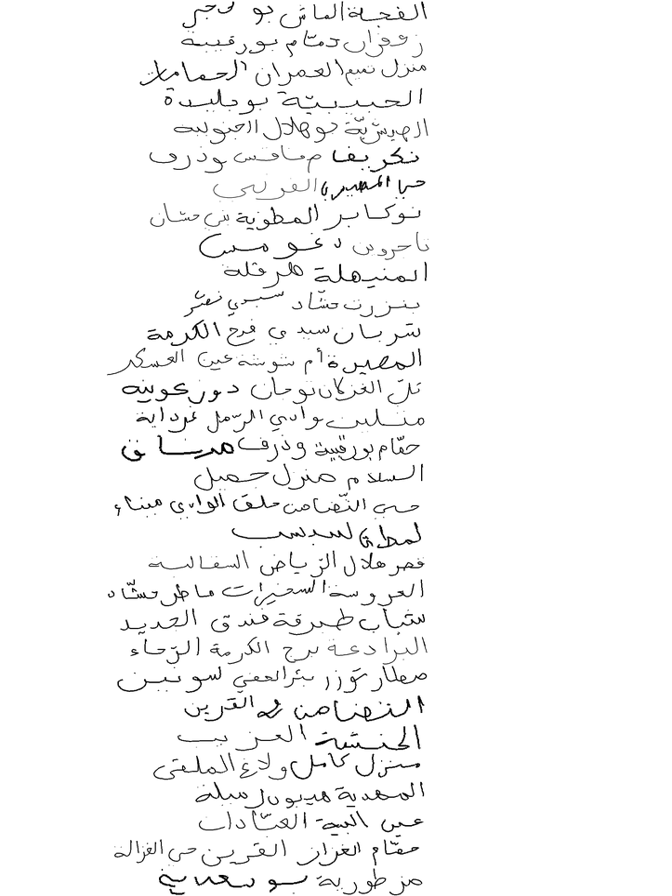 الفجة الماش بو حجر
زعفران حمام بورقيبة
منزل تميم العمران الحمامات
الحبيبية بوجليدة
الهيشرية بوهلال الجنوبية
نكريفا صفاقس وذرف
حي المصيري الغربي
نوكابر المطوية بني حسان
تاجروين دغومس
المنيهلة طرقلة
بنزرت حشاد سيدي نصر
شربان سيدي فرج الكرمة
المصيرة أم شوشة عين العسكر
تل الغزلان نوحان دوز عوينة
منسلين وادي الرمل غرداية
حمام بورقيبة وذرف
السلام منزل جميل
حي التضامن حلق الوادي ميناء
لمطة السبسب
قصر هلال الرياض السفالسة
العروسة الصخيرات ماطر حشاد
شباب طبرقة فندق الجديد
البرادعة برج الكرمة الرجاء
صطار توزر بئر الحفي لسونين
التضامن القرين
الخنشة العزيب
منزل كامل ولاغ الملقى
المهدية هيبون رميلة
عين البية العبادات
حمام الغزاز القرين حي الغزالة
مز طورية بو سعدية